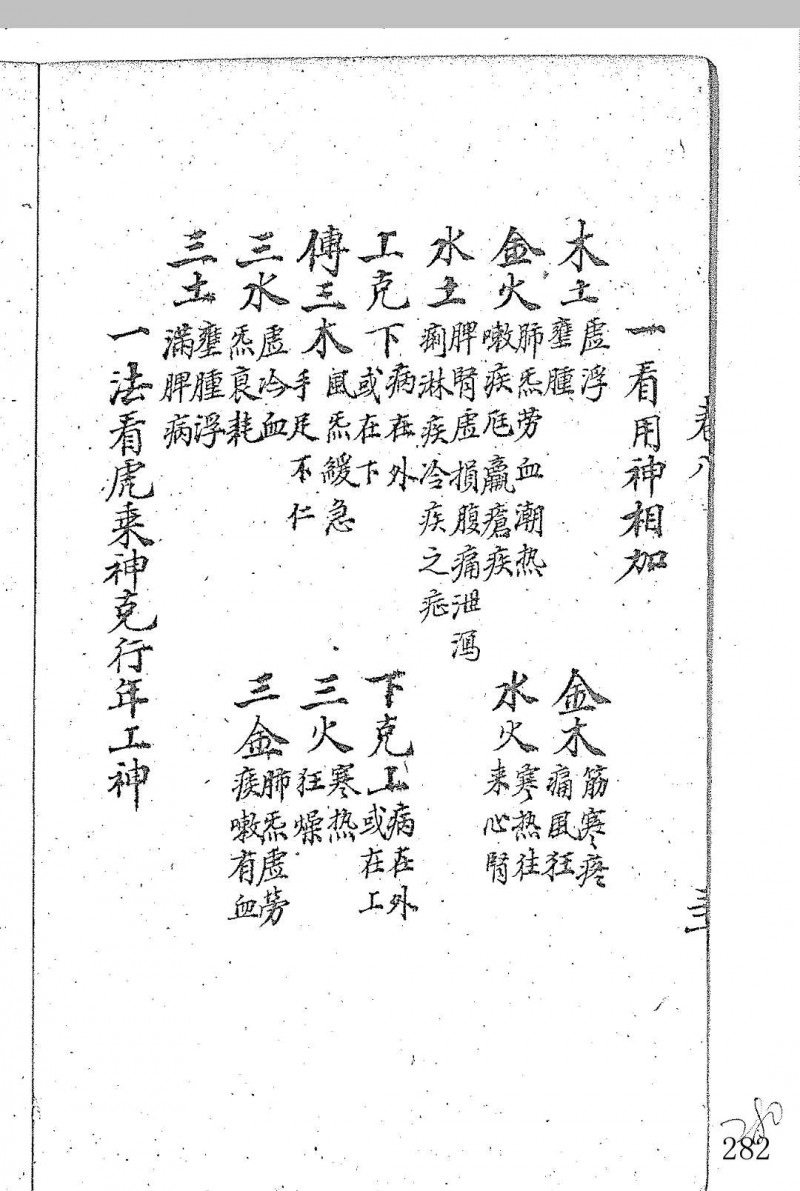 卷八
一看用神相加
木土 虛浮壅腫
金木 筋寒疼痛風狂
金火 肺炁劳血潮热嗽疾尫羸瘡疾
水火 寒热往来心腎
水土 脾腎虛損腹痛泄瀉痢淋疾冷疾之症
工克下 病在外或在下
下克工 病在外或在工
傳三木 風炁緩急手足不仁
三火 寒热狂燥
三水 虛冷血炁衰耗
三金 肺炁虛劳疾嗽有血
三土 壅腫浮滿脾病
一法看虎乘神克行年工神
282